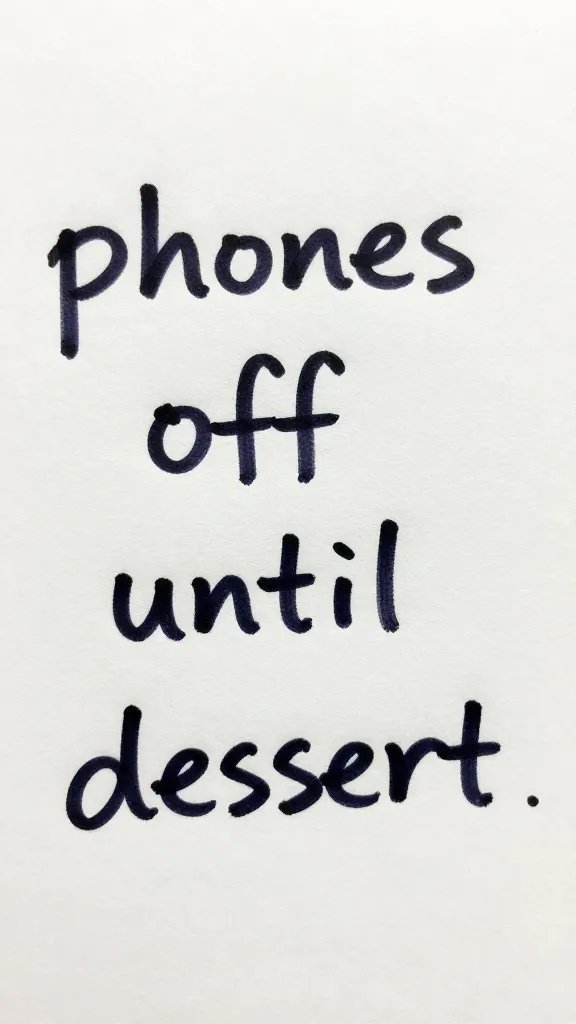 phones
off
until
dessert.